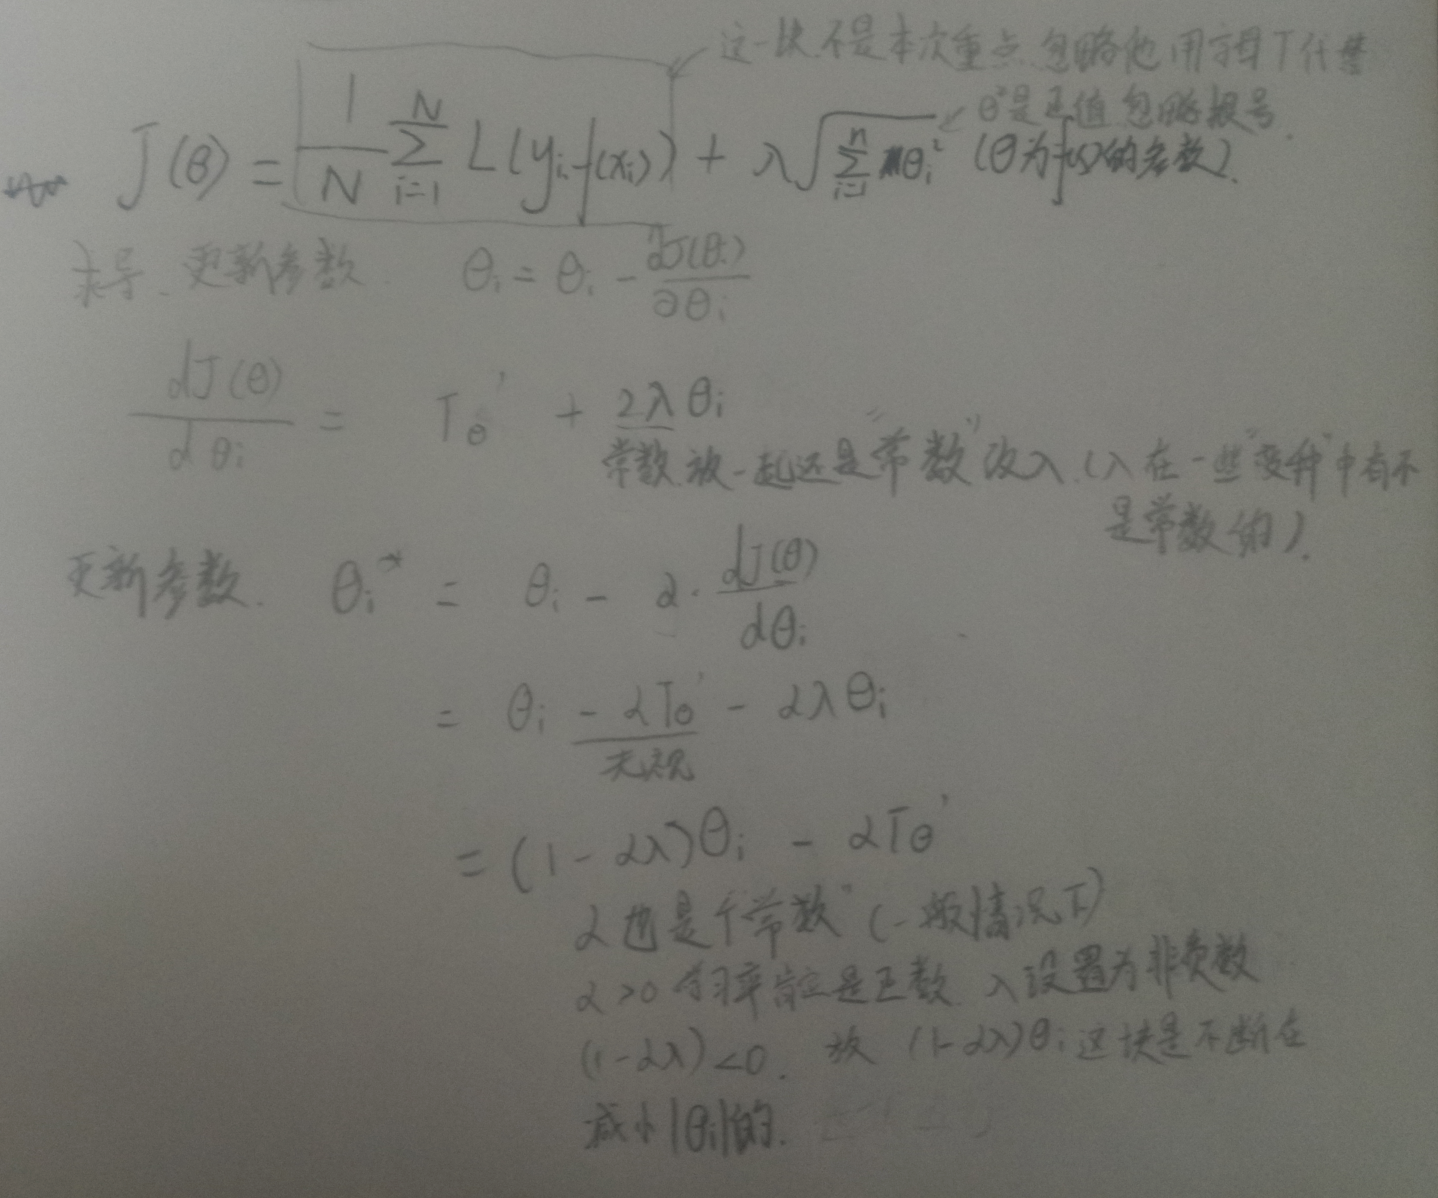 这一块不是本次重点 忽略他 用字母T代替
θ²是正值 忽略根号.
J(θ) = 1/N ∑_{i=1}^{N} L(y_i - f(x_i)) + λ√(∑_{i=1}^{n} θ_i²) (θ为f(x)的参数).
求导. 更新参数. θ_i = θ_i - ∂J(θ_i)/∂θ_i
dJ(θ)/dθ_i = T_θ' + 2λθ_i
常数放一起还是"常数" 改λ.(λ在一些"变种"中有不
是常数的).
更新参数. θ_i* = θ_i - α·dJ(θ)/dθ_i
= θ_i - αT_θ' - αλθ_i
无视
= (1-αλ)θ_i - αT_θ'
α也是个"常数"(一般情况下)
α>0 学习率肯定是正数. λ设置为非负数
(1-αλ)<0. 故 (1-αλ)θ_i 这块是不断在
减小|θ_i|的.